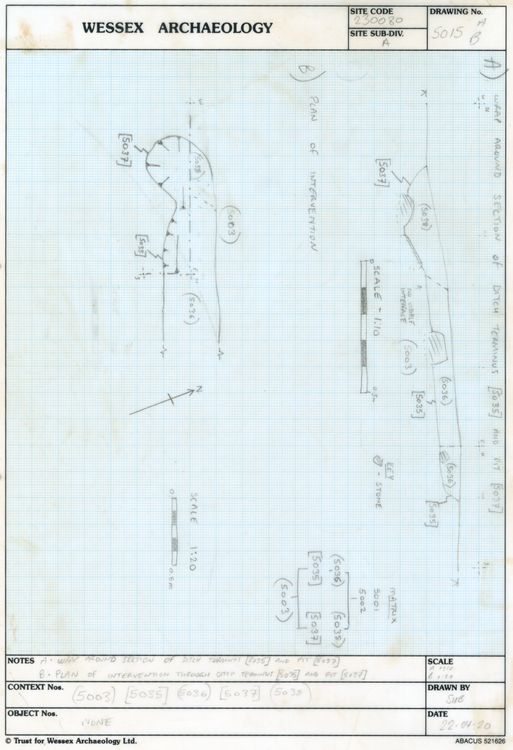 WESSEX ARCHAEOLOGY
SITE CODE
230080
SITE SUB-DIV.
A
DRAWING No.
5015 A
B
A) WRAP AROUND SECTION OF DITCH TERMINUS [5035] AND PIT [5037]
[5037]
(5038)
NO VISIBLE
INTERFACE
(5003)
(5036)
[5035]
(5036)
[5035]
SCALE - 1:10
0
0.5m
KEY
- STONE
MATRIX
5001
5002
(5036) (5038)
[5035] [5037]
(5003)
B) PLAN OF INTERVENTION
[5037]
(5038)
(5003)
[5035]
(5036)
N
SCALE 1:20
0
0.5m
NOTES A - WRAP AROUND SECTION OF DITCH TERMINUS [5035] AND PIT [5037]
B - PLAN OF INTERVENTION THROUGH DITCH TERMINUS [5035] AND PIT [5037]
SCALE
A 1:10
B 1:20
CONTEXT Nos.
(5003) [5035] (5036) [5037] (5038)
DRAWN BY
OBJECT No.
NONE
DATE
22-04-20
© Trust for Wessex Archaeology Ltd.
ABACUS 521626